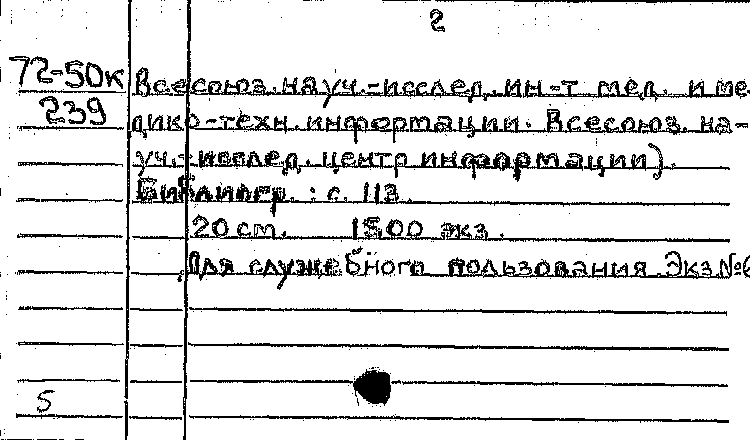 2
72-50к Всесоюз. науч.-исслед. ин-т мед. и ме
239 дико-техн. информации. Всесоюз. на-
уч.-исслед. центр информации).
Библиогр.: с. 113.
20 см. 1500 экз.
Для служебного пользования. Экз №6
5